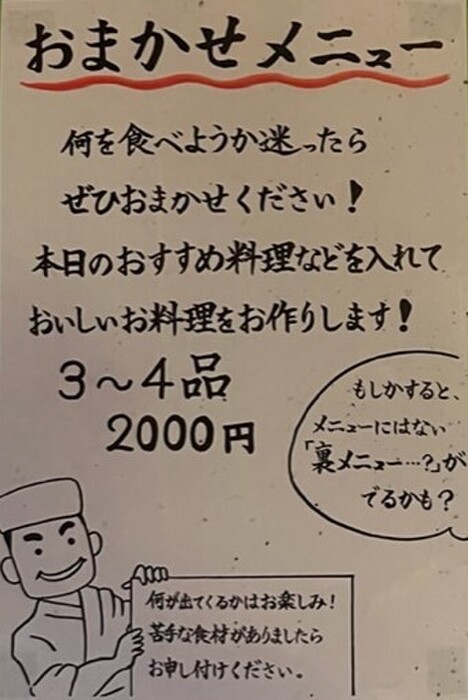 おまかせメニュー
何を食べようか迷ったら
ぜひおまかせください!
本日のおすすめ料理などを入れて
おいしいお料理をお作りします!
3〜4品
2000円
もしかすると、
メニューにはない
「裏メニュー…?」が
でるかも?
何が出てくるかはお楽しみ!
苦手な食材がありましたら
お申し付けください。